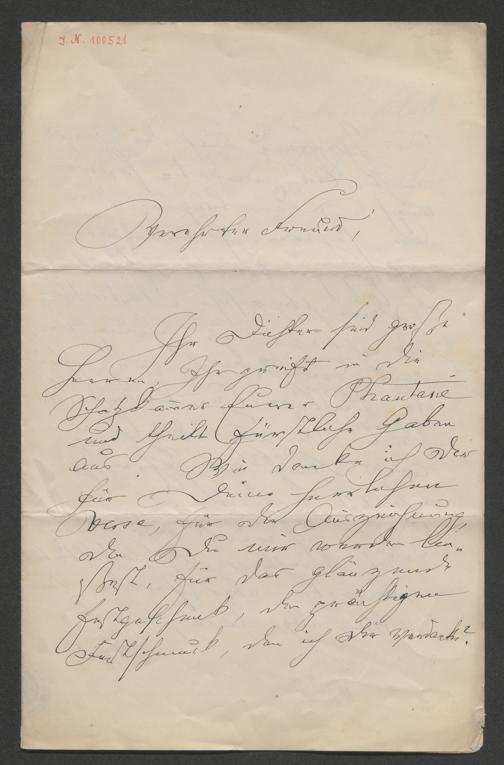 J. N. 100521
Verehrter Freund!
Ihr Dichter seid große
Herren, Ihr greift in die
Schatzkammer Eurer Phantasie
und theilt fürstliche Gaben
aus. Wie danke ich Dir
für Deine herrlichen
Verse, für die Auszeichnung,
die Du mir werden läs-
sest, für das glänzende
Festgeschenk, den prächtigen
Festschmuck, den ich Dir verdanke?